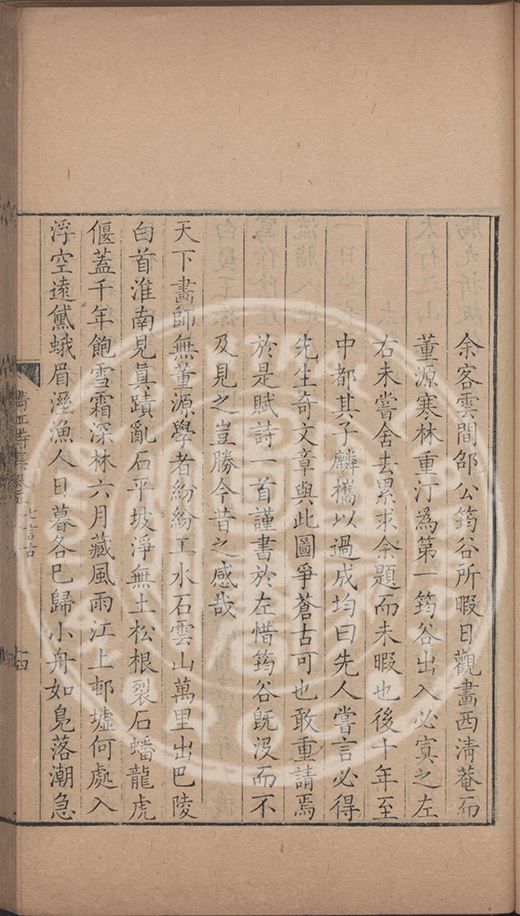 余客雲間邵公筠谷所暇日觀畫西清菴而
董源寒林重汀為第一筠谷出入必寘之左
右未嘗舍去累求余題而未暇也後十年至
中都其子麟攜以過成均曰先人嘗言必得
先生奇文章與此圖爭蒼古可也敢重請焉
於是賦詩一首謹書於左惜筠谷既沒而不
及見之豈勝今昔之感哉
天下畫師無董源學者紛紛工水石雲山萬里出巴陵
白首淮南見真蹟亂石平坡淨無土松根裂石蟠龍虎
偃蓋千年飽雪霜深林六月藏風雨江上邨墟何處入
浮空遠黛蛾眉溼漁人日暮各已歸小舟如鳧落潮急
七言古